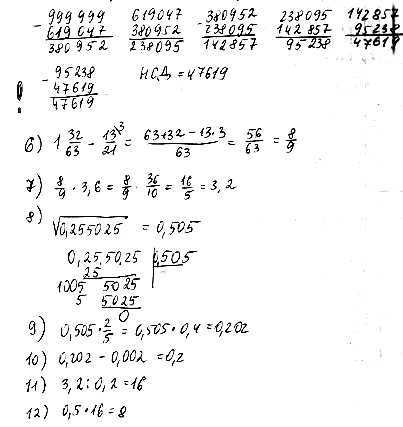 - 999 999   619047   - 380952   238095   142857
619 047   380952   238095   142 857   95238
380952   238095   142857   95238   47619
- 95238   НСД = 47619
! 47619
47619
6) 1 32/63 - 13/21 ³ = 63+32-13·3/63 = 56/63 = 8/9
7) 8/9 · 3,6 = 8/9 · 36/10 = 16/5 = 3,2
8)
√0,255025 = 0,505
0,25.50.25 | 0,505
25
1005 5025
5 5025
0
9) 0,505 · 2/5 = 0,505 · 0,4 = 0,202
10) 0,202 - 0,002 = 0,2
11) 3,2 : 0,2 = 16
12) 0,5 · 16 = 8